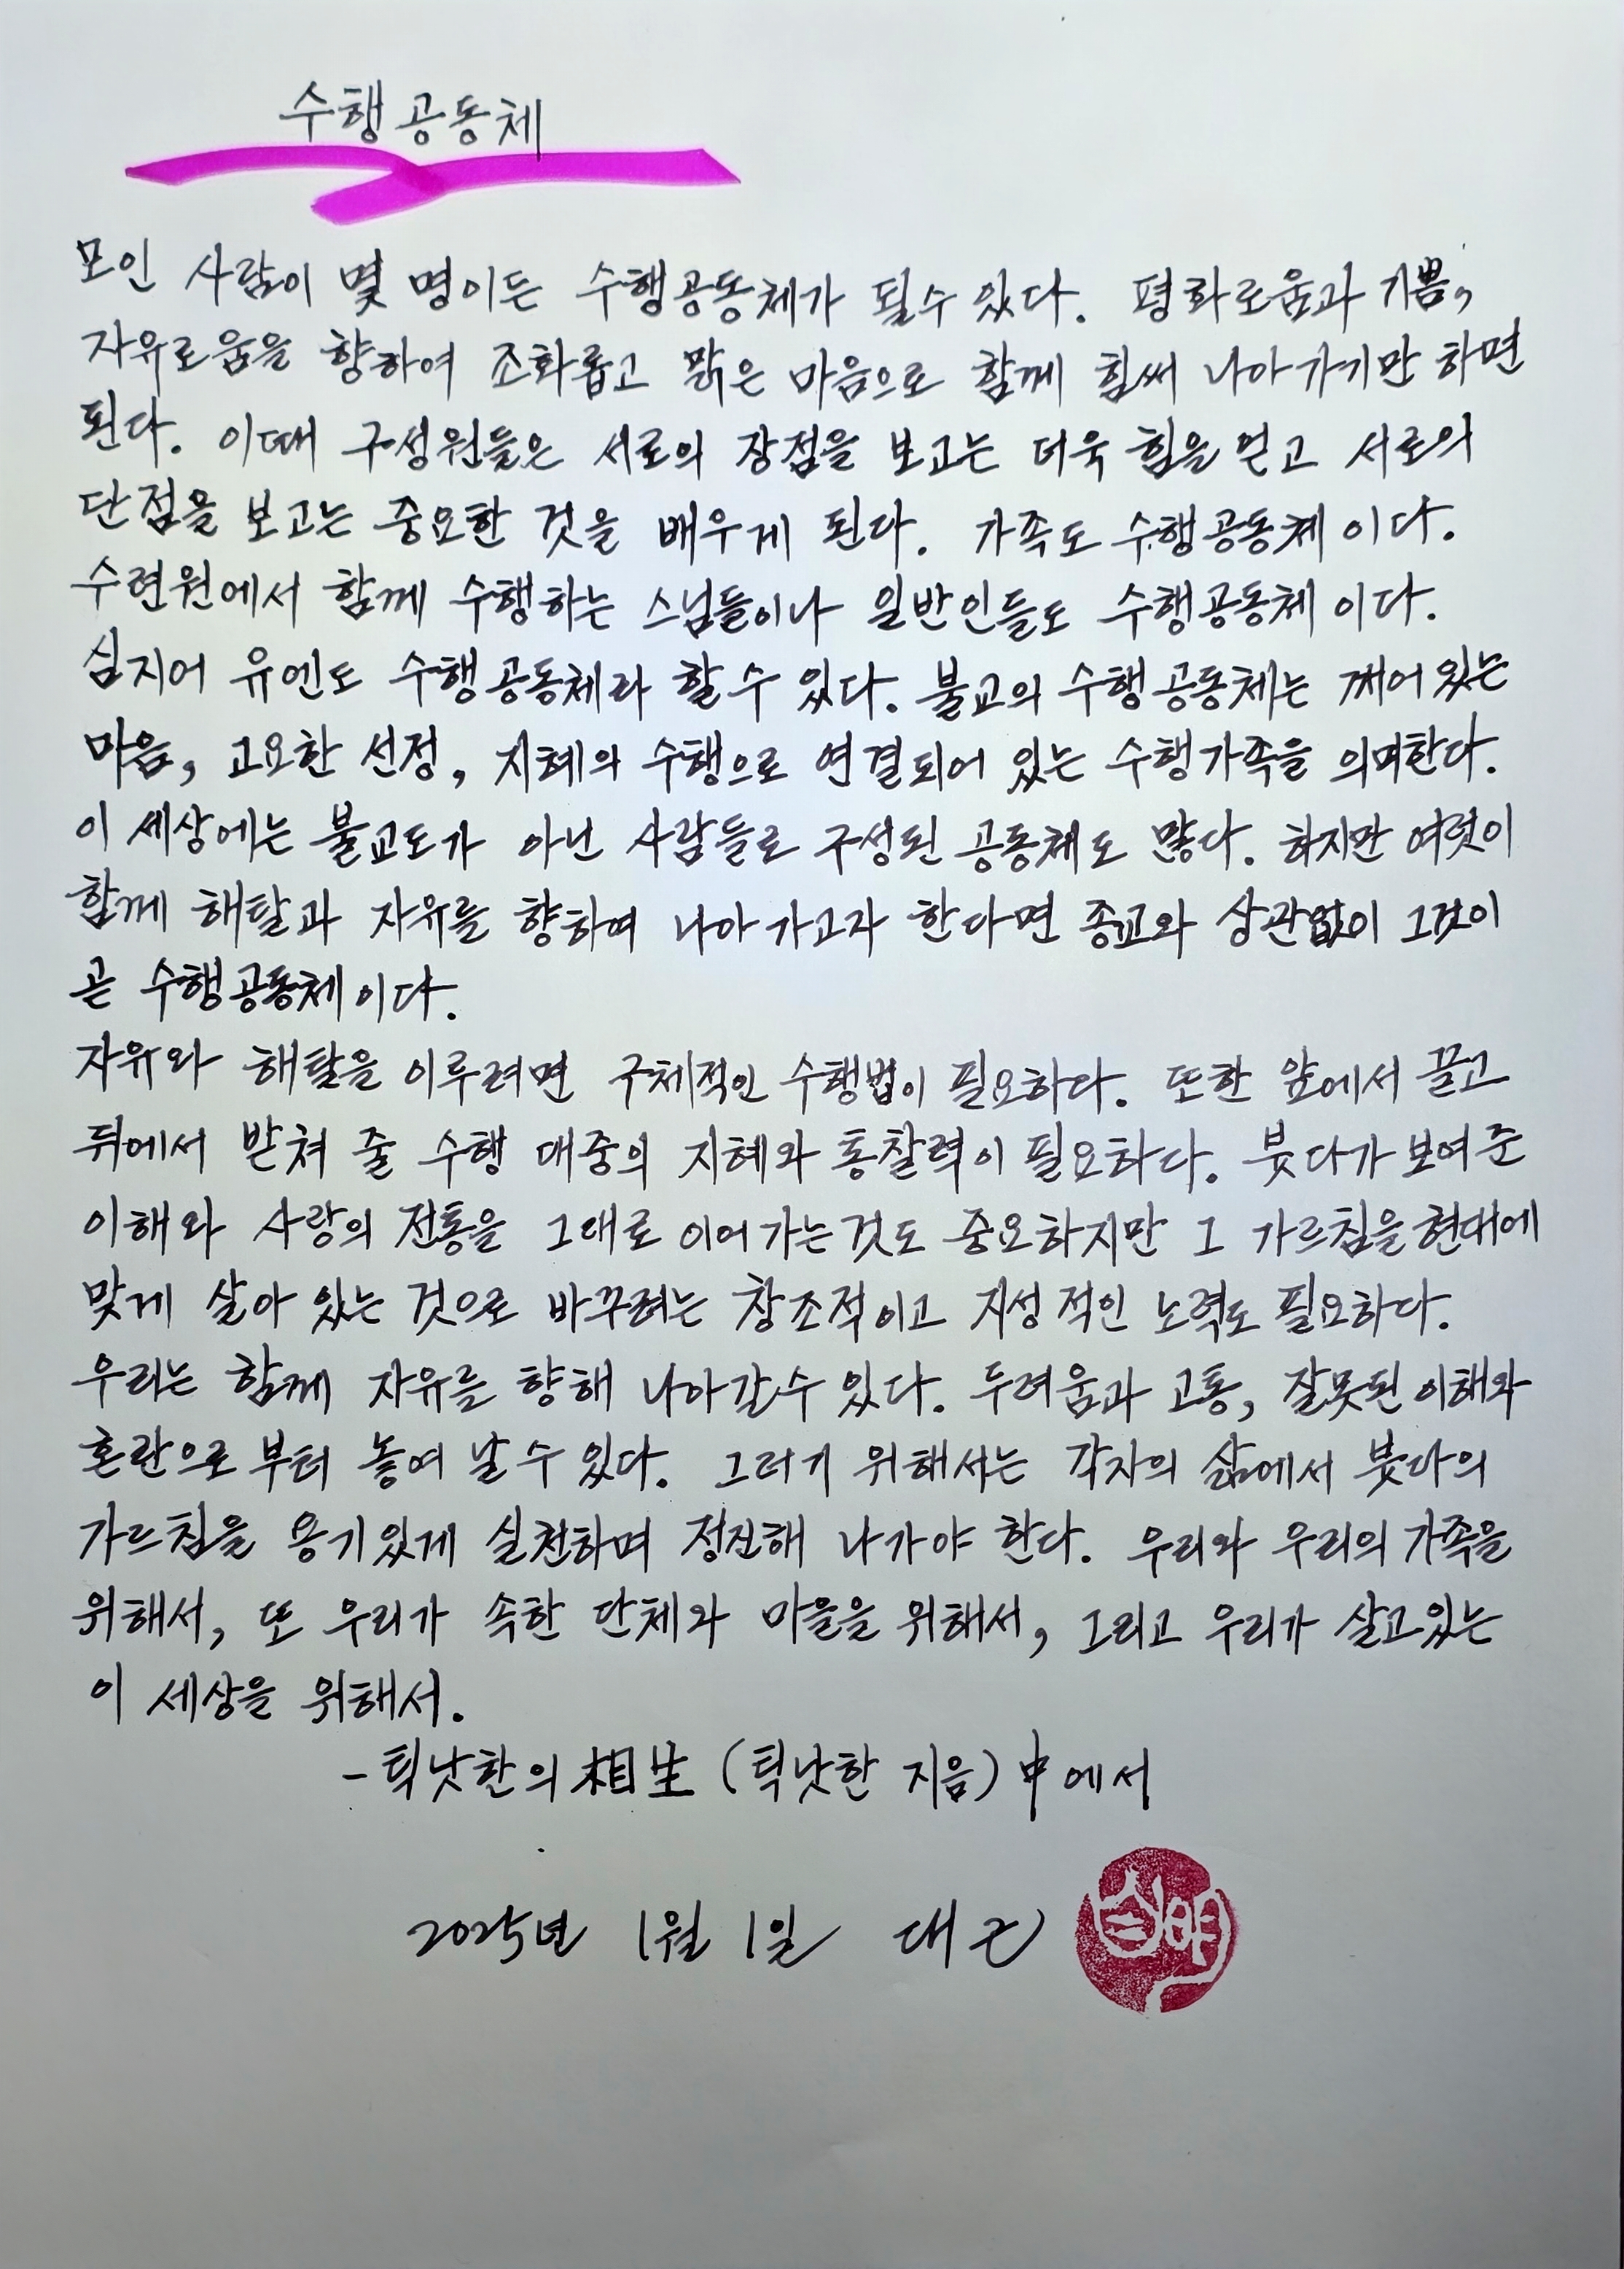 수행공동체
모인 사람이 몇 명이든 수행공동체가 될수 있다. 평화로움과 기쁨,
자유로움을 향하여 조화롭고 맑은 마음으로 함께 힘써 나아가기만 하면
된다. 이때 구성원들은 서로의 장점을 보고는 더욱 힘을 얻고 서로의
단점을 보고는 중요한 것을 배우게 된다. 가족도 수행공동체이다.
수련원에서 함께 수행하는 스님들이나 일반인들도 수행공동체이다.
심지어 유엔도 수행공동체라 할수 있다. 불교의 수행공동체는 깨어있는
마음, 고요한 선정, 지혜와 수행으로 연결되어 있는 수행가족을 의미한다.
이 세상에는 불교도가 아닌 사람들로 구성된 공동체도 많다. 하지만 여럿이
함께 해탈과 자유를 향하여 나아가고자 한다면 종교와 상관없이 그것이
곧 수행공동체이다.
자유와 해탈을 이루려면 구체적인 수행법이 필요하다. 또한 앞에서 끌고
뒤에서 받쳐 줄 수행 대중의 지혜와 통찰력이 필요하다. 붓다가 보여준
이해와 사랑의 전통을 그대로 이어가는것도 중요하지만 그 가르침을 현대에
맞게 살아 있는 것으로 바꾸려는 창조적이고 지성적인 노력도 필요하다.
우리는 함께 자유를 향해 나아갈수 있다. 두려움과 고통, 잘못된 이해와
혼란으로부터 놓여 날수 있다. 그러기 위해서는 각자의 삶에서 붓다의
가르침을 용기있게 실천하며 정진해 나가야 한다. 우리와 우리의 가족을
위해서, 또 우리가 속한 단체와 마을을 위해서, 그리고 우리가 살고있는
이 세상을 위해서.
-틱낫한의 相生 (틱낫한 지음) 中에서
2025년 1월 1일 대근